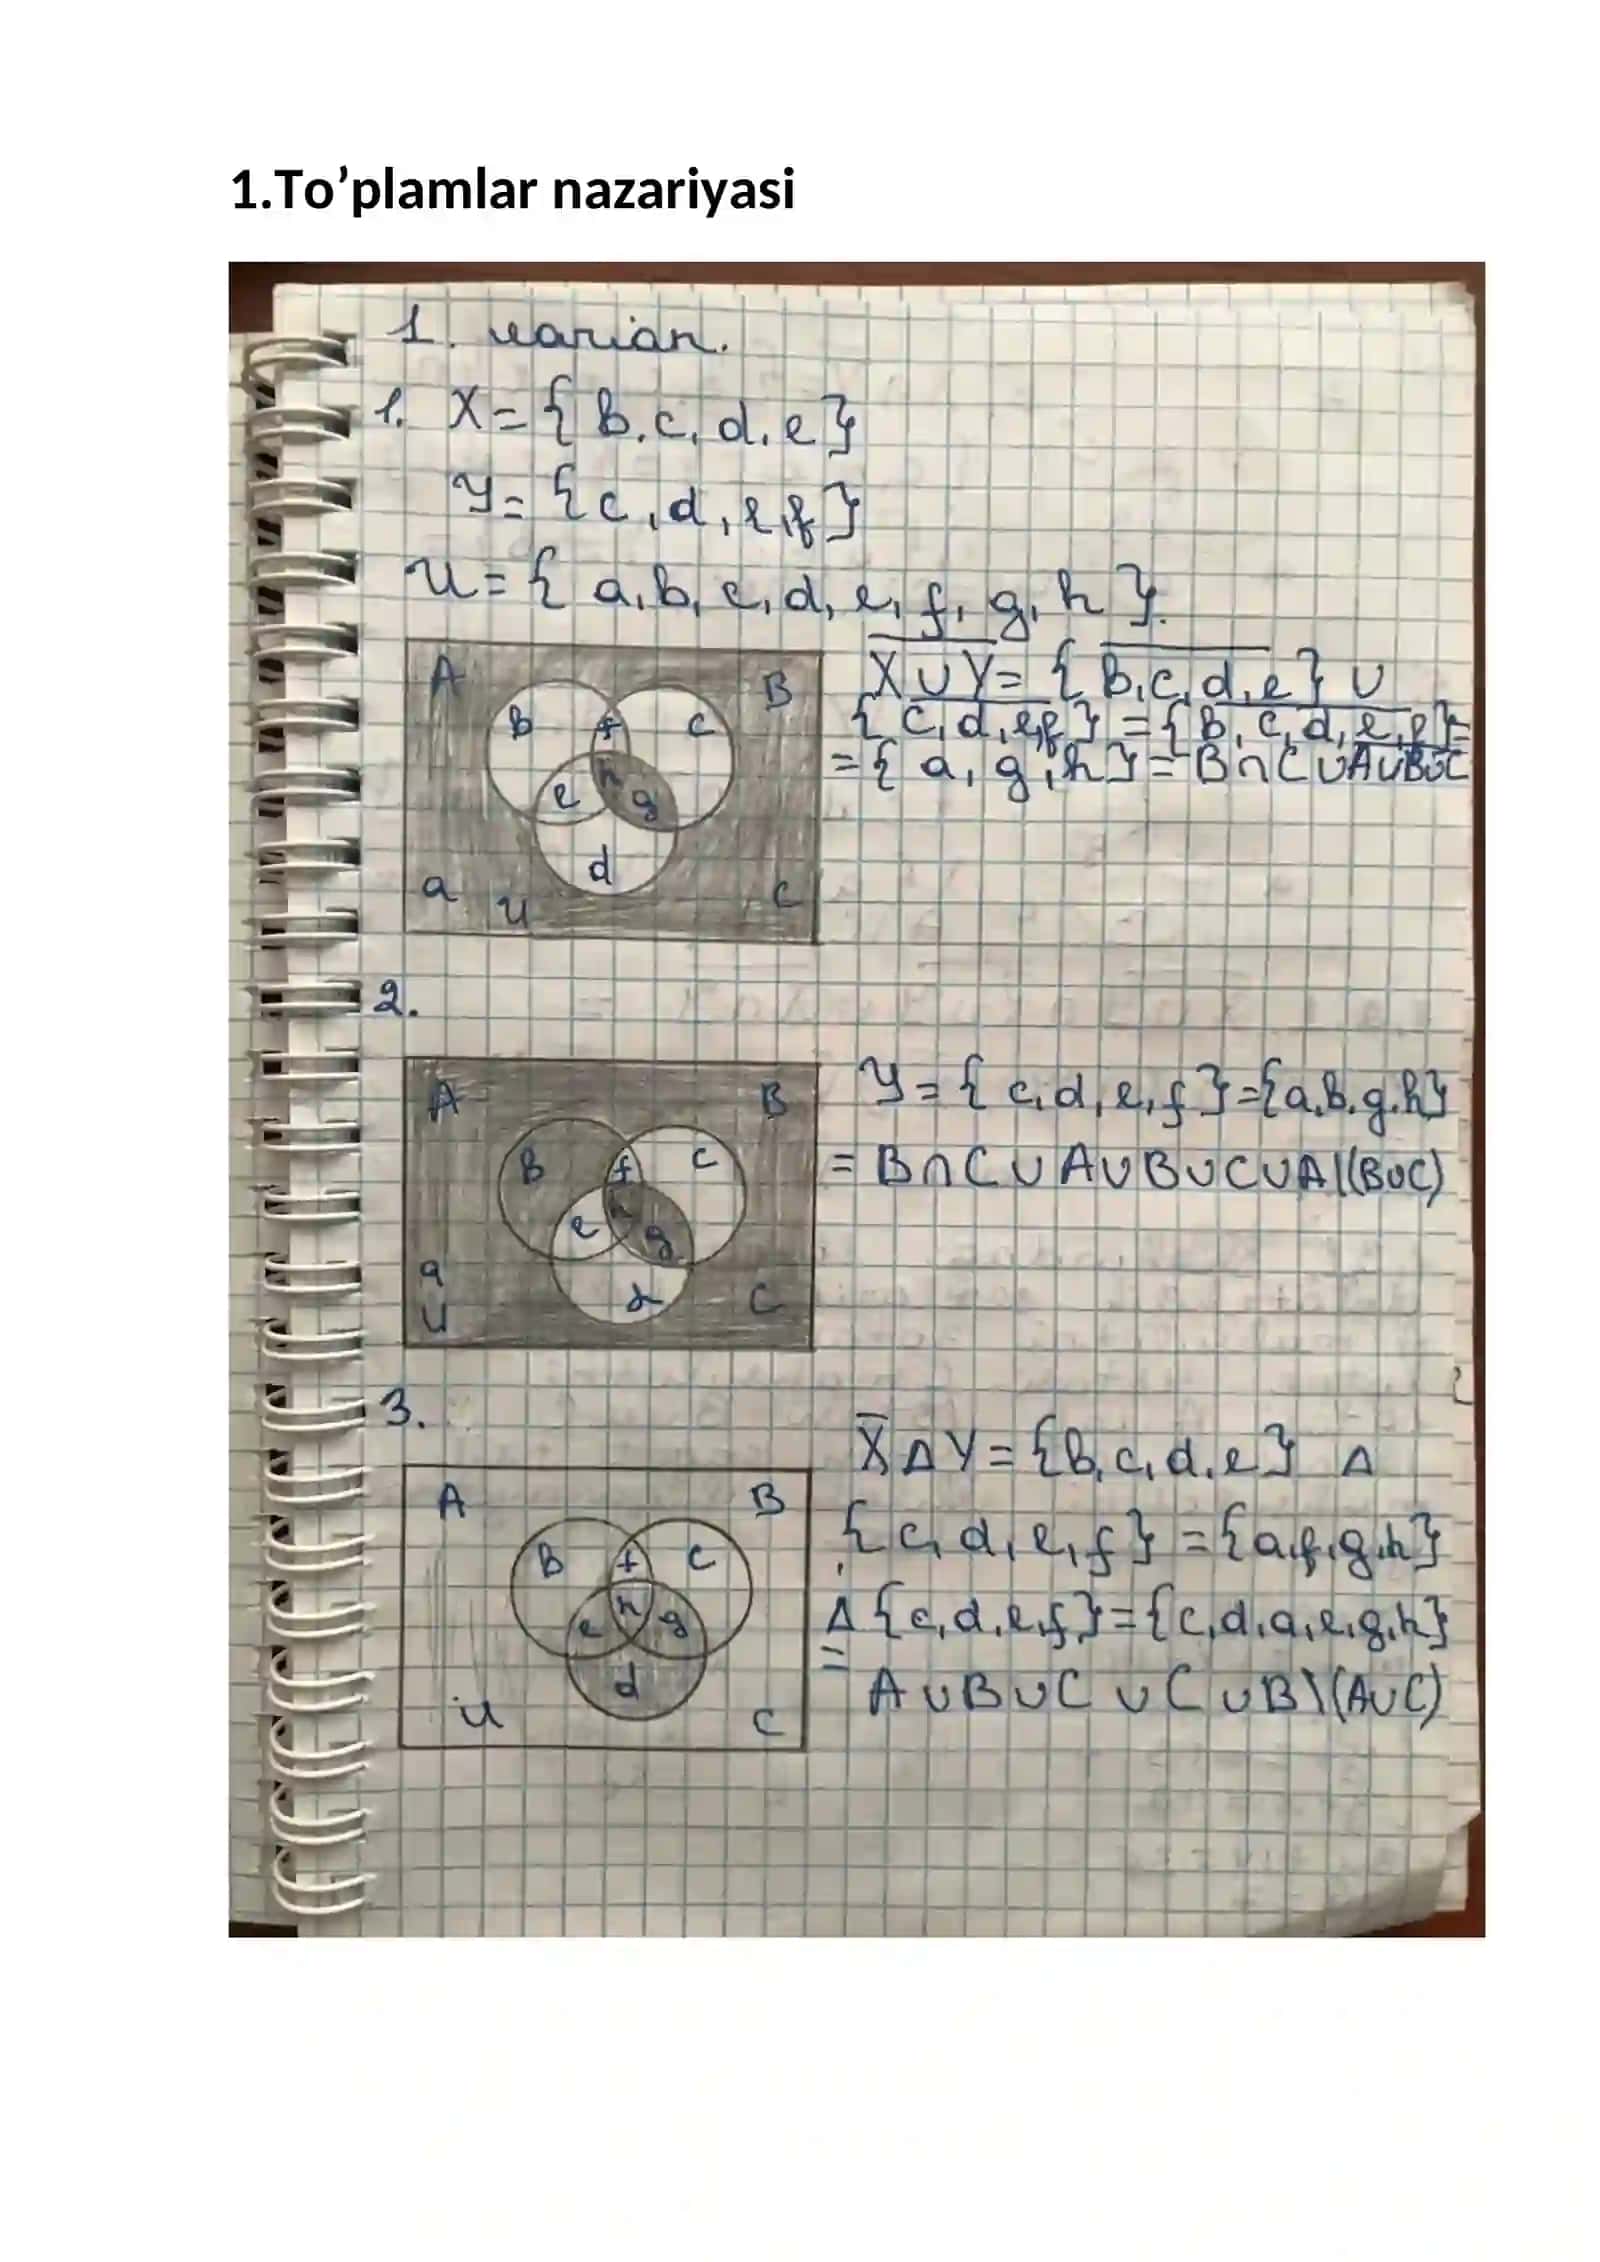 1.To’plamlar nazariyasi
1. varian.
1. X = { B, c, d, e }
Y = { c, d, e, f }
U = { a, b, c, d, e, f, g, h }.
A
B
B
f
C
h
e
g
d
a
U
C
X∪Y = { B, c, d, e } ∪
{ c, d, e, f } = { B, c, d, e, f } =
= { a, g, h } = B∩C∪A∪B∪C
2.
A
B
B
f
C
h
e
g
a
d
C
U
Y = { c, d, e, f } = {a, b, g, h}
= B∩C∪A∪B∪C∪A\(B∪C)
3.
A
B
B
f
C
h
e
g
d
U
C
X̅ Δ Y = {b, c, d, e} Δ
{ c, d, e, f } = {a, f, g, h}
Δ {c, d, e, f} = {c, d, a, e, g, h}
=
A∪B∪C ∪C∪B\(A∪C)